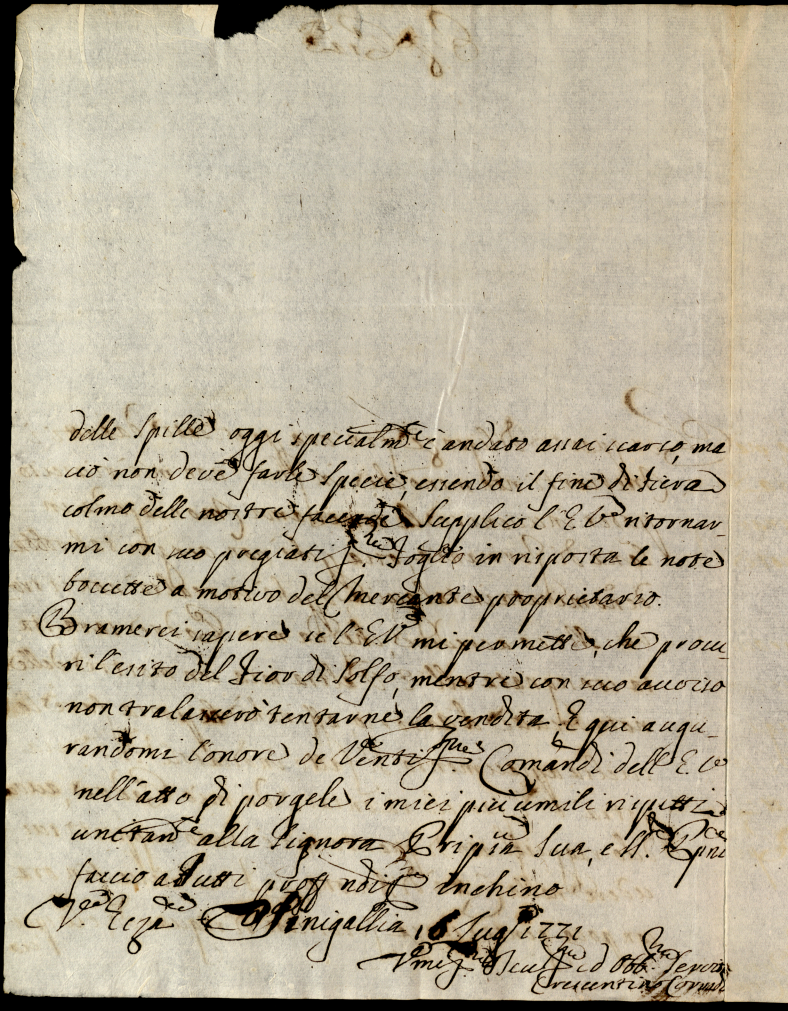 delle Spille oggi specialm.te è andato assai scarso, ma
ciò non deve farle specie, essendo il fine di fiera
colmo delle nostre facende. Supplico l'E. V.a ritornar-
mi con suo pregiatis.mo foglio in risposta le note
boccette a motivo del Mercante proprietario.
Bramerei sapere se l'E. V.a mi permette, che procu-
ri l'esito del Fior di Solfo, mentre con suo avviso
non tralascerò tentarne la vendita. E qui augu-
randomi l'onore de Ven.ti Comandi dell'E. V.a
nell'atto di porgele i miei più umili rispetti
unitam.te alla Signora Pripi.ssa Sua, e
faccio a tutti proff ndis.o inchino
V.ra Ecza Sinigallia, 16 Lug.o 1771
Umilis.mo ed Obb.mo Servit
Crescentino